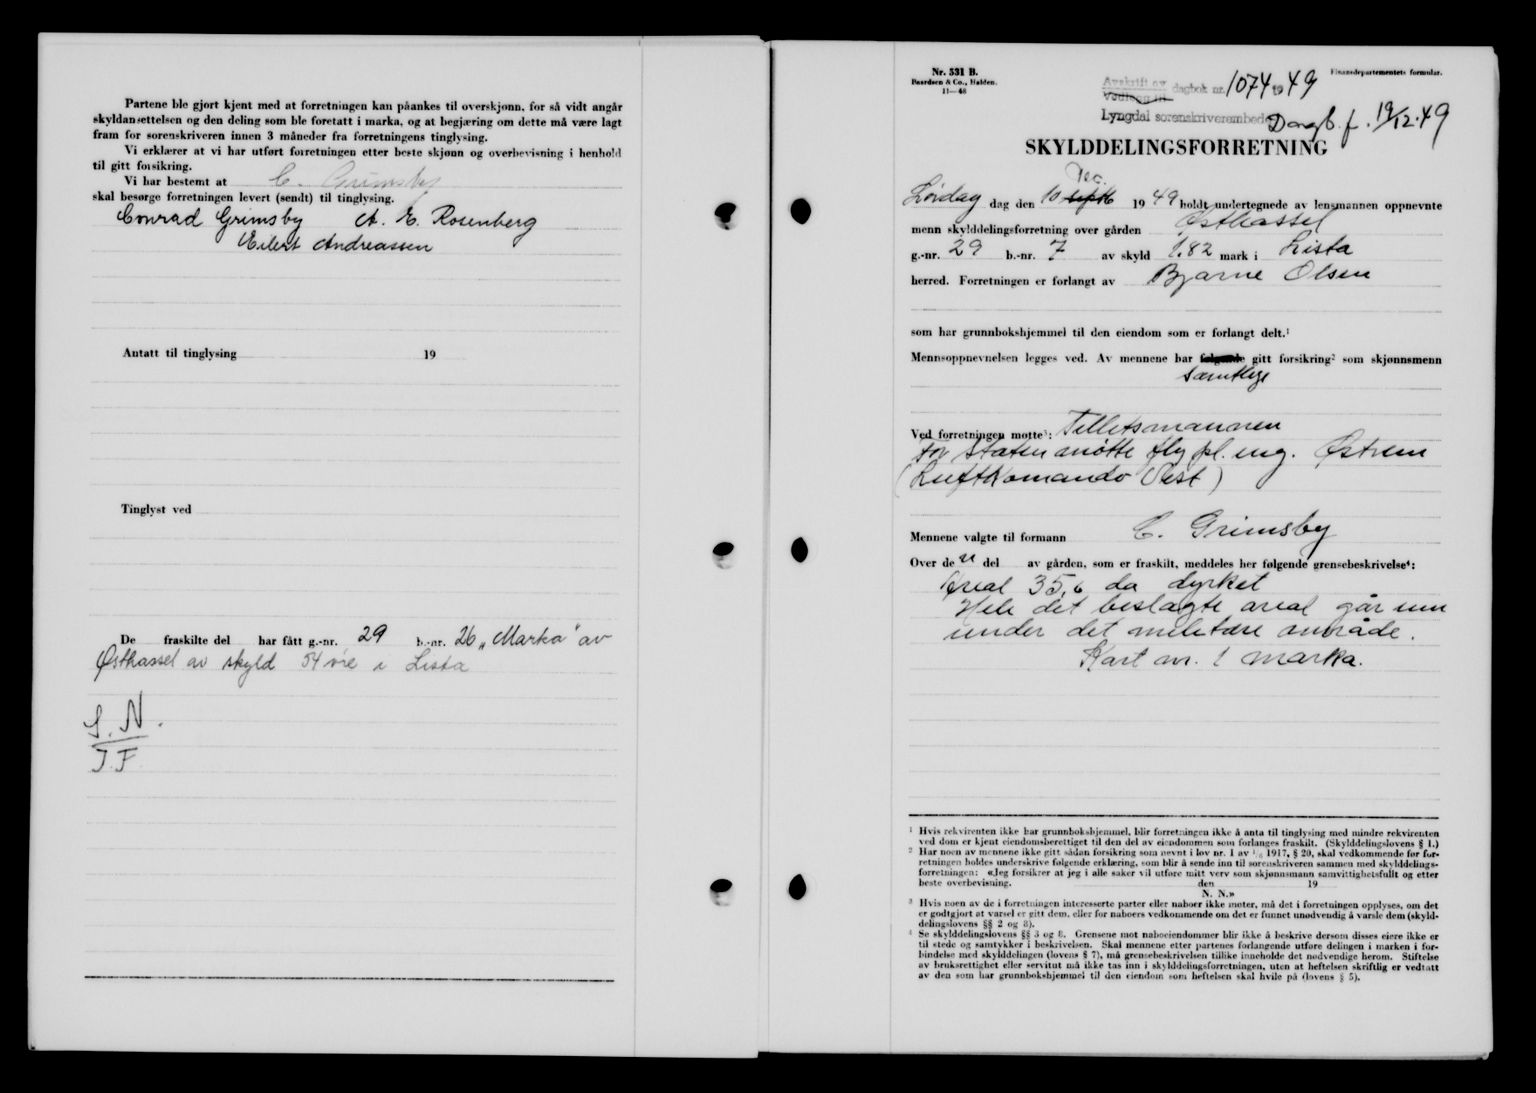 Partene ble gjort kjent med at forretningen kan påankes til overskjønn, for så vidt angår
skyldansettelsen og den deling som ble foretatt i marka, og at begjæring om dette må være lagt
fram for sorenskriveren innen 3 måneder fra forretningens tinglysing.
Vi erklærer at vi har utført forretningen etter beste skjønn og overbevisning i henhold
til gitt forsikring.
Vi har bestemt at C. Grimsby
skal besørge forretningen levert (sendt) til tinglysing.
Conrad Grimsby A. E. Rosenberg
Eilert Andreassen
Antatt til tinglysing 19
Tinglyst ved
De fraskilte del har fått g.-nr. 29 b.-nr. 26 „Marka" av
Østhassel av skyld 54 øre i Lista
S. N.
J. F.
Nr. 531 B.
Baardsen & Co., Halden.
11—48
Finansdepartementets formular.
Avskrift av
Vedlegg til dagbok nr. 1074 1949
Lyngdal sorenskriverembede Dagb. f. 19/12-49
SKYLDDELINGSFORRETNING
Des.
Lørdag dag den 10 sept 1949 holdt undertegnede av lensmannen oppnevnte
menn skylddelingsforretning over gården Østhassel
g.-nr. 29 b.-nr. 7 av skyld 1.82 mark i Lista
herred. Forretningen er forlangt av Bjarne Olsen
som har grunnbokshjemmel til den eiendom som er forlangt delt.¹
Mennsoppnevnelsen legges ved. Av mennene har følgende gitt forsikring² som skjønnsmenn
samtlige
Ved forretningen møtte³: Tillitsmannen
For Staten møtte fly pl. ing. Østrem
(Luftkomando Vest)
Mennene valgte til formann C. Grimsby
Over de n del av gården, som er fraskilt, meddeles her følgende grensebeskrivelse⁴:
Areal 35,6 da dyrket
Hele det beslagte areal går inn
under det militære område.
Kart nr. 1 marka.
¹ Hvis rekvirenten ikke har grunnbokshjemmel, blir forretningen ikke å anta til tinglysing med mindre rekvirenten
ved dom er kjent eiendomsberettiget til den del av eiendommen som forlanges fraskilt. (Skylddelingslovens § 1.)
² Har noen av mennene ikke gitt sådan forsikring som nevnt i lov nr. 1 av 1/6 1917, § 20, skal vedkommende før for-
retningen holdes underskrive følgende erklæring, som blir å sende inn til sorenskriveren sammen med skylddelings-
forretningen: «Jeg forsikrer at jeg i alle saker vil utføre mitt verv som skjønnsmann samvittighetsfullt og etter
beste overbevisning. den 19
N. N.»
³ Hvis noen av de i forretningen interesserte parter eller naboer ikke møter, må det i forretningen opplyses, om det
er godtgjort at varsel er gitt dem, eller for naboers vedkommende om det er funnet unødvendig å varsle dem (skyld-
delingslovens §§ 2 og 8).
⁴ Se skylddelingslovens §§ 3 og 8. Grensene mot naboeiendommer blir ikke å beskrive dersom disses eiere ikke er
til stede og samtykker i beskrivelsen. Skal mennene etter partenes forlangende utføre delingen i marken i for-
bindelse med skylddelingen (lovens § 7), må grensebeskrivelsen tillike inneholde det nødvendige herom. Stiftelse
av bruksrettighet eller servitut må ikke tas inn i skylddelingsforretningen, uten at heftelsen skriftlig er vedtatt
av den som har grunnbokshjemmel til den eiendom som heftelsen skal hvile på (lovens § 5).